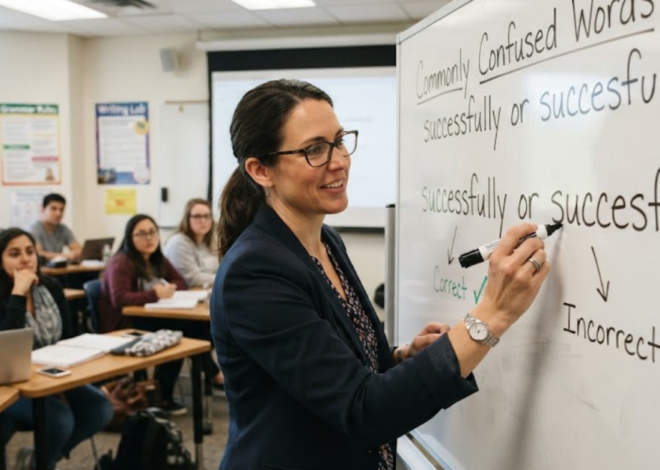 Grammar Rules
Writing Lab
Commonly Confused Words
successfully or succesfu
successfully or succesf
Correct ✓
Incorrect